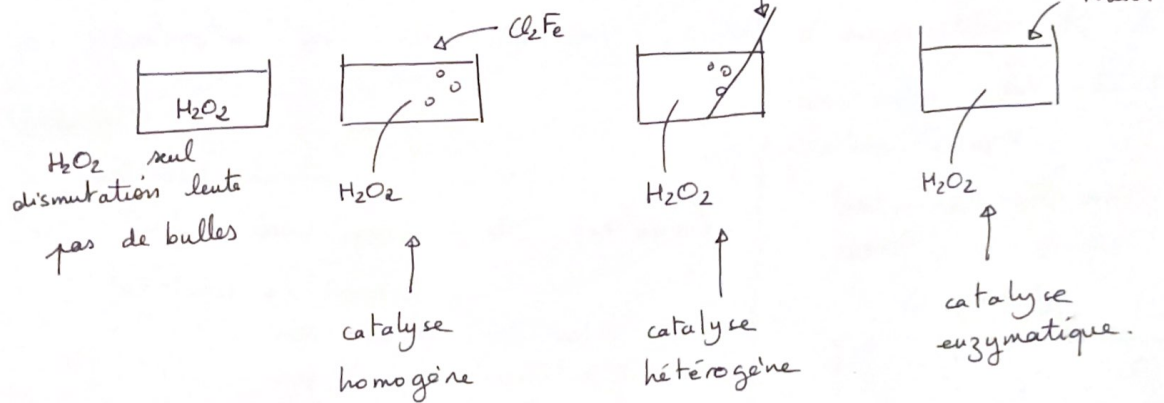 Cl2Fe
H2O2
H2O2 seul
dismutation lente
pas de bulles
H2O2
catalyse
homogène
H2O2
catalyse
hétérogène
H2O2
catalyse
enzymatique.